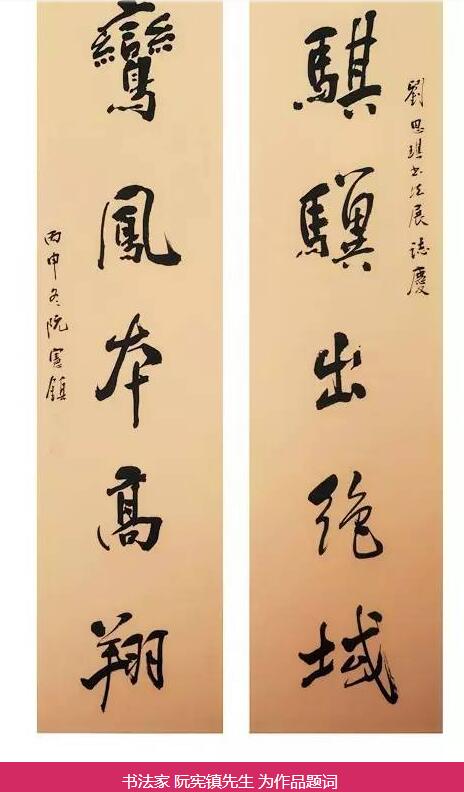 劉思琪书法展誌慶
騏驥出絶域
鸞鳳本高翔
丙申冬阮憲鎮
书法家 阮宪镇先生 为作品题词